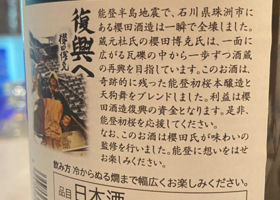 復興へ
櫻田博克
能登半島地震で、石川県珠洲市に
ある櫻田酒造は一瞬で全壊しました。
蔵元杜氏の櫻田博克氏は、一面に
広がる瓦礫の中から一歩ずつ酒蔵
の再興を目指しています。このお酒は、
奇跡的に残った能登初桜本醸造と
天狗舞をブレンドしました。利益は櫻田
酒造復興の資金となります。是非、
能登初桜を応援してください。
なお、このお酒は櫻田氏が味わいの
監修を行いました。能登に想いをはせ
お楽しみください。
飲み方 冷からぬる燗まで幅広くお楽しみください。
品目 日本酒